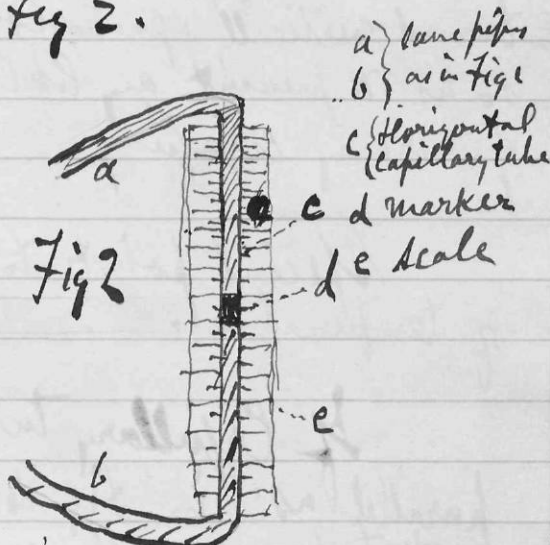 Fig 2.
a } same pipes
b } as in Fig 1
c { Horizontal
capillary tube
d marker
e scale
a
c
Fig 2
d
e
b